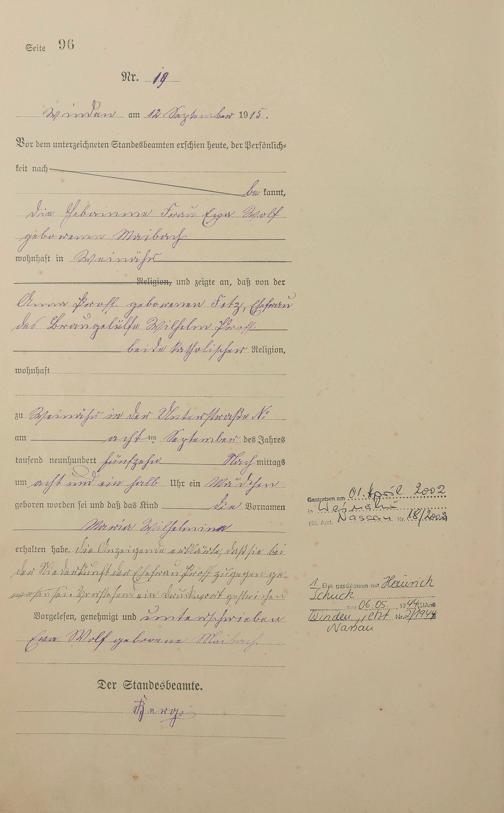 Seite 96
Nr. 19
Winden am 12 September 1915.
Vor dem unterzeichneten Standesbeamten erschien heute, der Persönlich-
keit nach
be kannt,
die Hebamme Frau Eva Wolf
geborenen Maibach
wohnhaft in Weinähr
Religion, und zeigte an, daß von der
Anna Proff geborenen Fetz, Ehefrau
des Wilhelm Proff
beide katholischer Religion,
wohnhaft
zu Weinähr in der Unterstraße №
am acht ten September des Jahres
tausend neunhundert fünfzehn Nach mittags
um acht und ein halb Uhr ein Mädchen
geboren worden sei und daß das Kind die Vornamen
Maria Wilhelmina
erhalten habe. Die Anzeigerin erklärte, daß sie bei
der Niederkunft der Ehefrau Proff zugegen ge-
wesen sei.
Vorgelesen, genehmigt und unterschrieben
Eva Wolf geborene Maibach
Der Standesbeamte.
Gestorben am 01. April 2002
in Weinähr
Nassau Nr. 18/2002
1. Ehe geschlossen mit Heinrich
Schuck
am 06.05. 1944
Winden jetzt Nr. 2/1944
Nassau